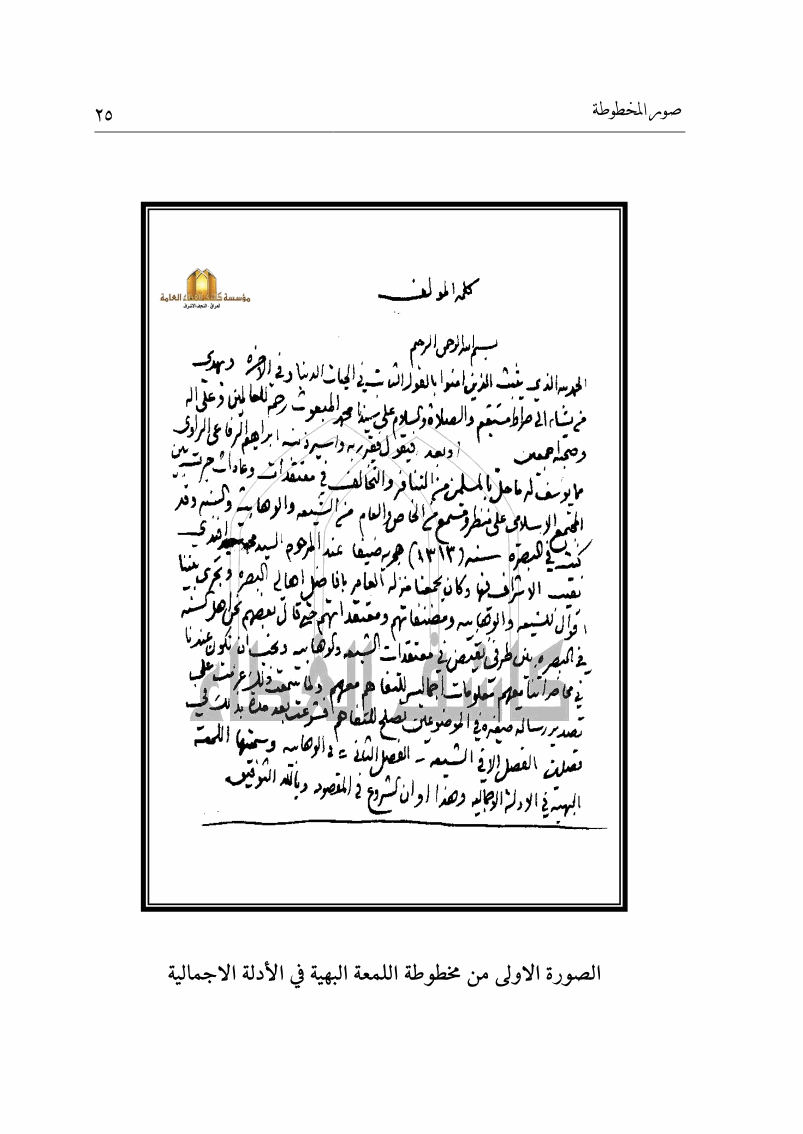 صور المخطوطة
٢٥
مؤسسة كاشف الغطاء العامة
العراق - النجف الاشرف
كلمة المؤلف
بسم الله الرحمن الرحيم
الحمد لله الذي يثبت الذين امنوا بالقول الثابت في الحيات الدنيا وفي الآخرة ويهدي
من يشاء الى صراط مستقيم والصلاة والسلام على سيدنا محمد المبعوث رحمة للعالمين وعلى اله
وصحبه اجمعين اوبعد فيقول فقير ربه واسير ذنبه ابراهيم الرفاعي الراوي
مما يوسف له ما حل بالمسلمين من التنافر والتخالف في معتقدات وعادات جرت بين
المجتمع الاسلامي على منظر ومسمع من الخاص والعام من الشيعه والوهابية والسنه وقد
كنت في البصره سنه (١٣١٣) هجريه ضيفا عند المرحوم السيد محمد سعيد افندي
نقيب الاشراف فيها وكان يجمعنا منزله العامر بافاضل اهالي البصره وتجري بيننا
اقوال للشيعه والوهابيه ومصنفاتهم ومعتقداتهم حتى قال بعضهم نحن اهل السنه
في البصره بين طرفي نقيض في معتقدات الشيعه والوهابيه ونحب ان تكون عندنا
في محاضراتنا معهم معلومات اجماليه للتفاهم معهم ولما سمعت ذلك عزمت على
تصدير رساله صغيره في الموضوعين تصلح للتفاهم فشرعت بعد مدة بذلك في
فصلين الفصل الاول في الشيعه - الفصل الثاني = في الوهابيه وسميتها اللمعة
البهية في الادلة الاجماليه وهذا اوان الشروع في المقصود وبالله التوفيق
كاشف الغطاء
الصورة الاولى من مخطوطة اللمعة البهية في الأدلة الاجمالية